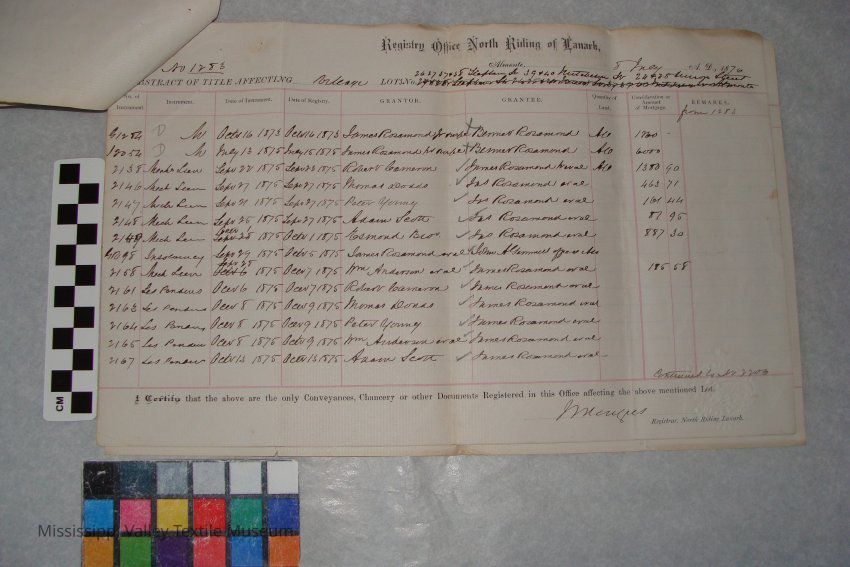 Registry Office North Riding of Lanark,
No 1283
Almonte, 8 A. D., 1876
ABSTRACT OF TITLE AFFECTING LOTS No.
No. of Instrument. Instrument. Date of Instrument. Date of Registry. GRANTOR. GRANTEE. Quantity of Land. Consideration or Amount of Mortgage. REMARKS.
from 1283
D M Octr 16 1873 Octr 16 1873 James Rosamond Bennett Rosamond 1700 -
D M July 13 1875 July 15 1875 James Rosamond Bennett Rosamond 6000
2138 Mech Lien Sepr 22 1875 Sepr 23 1875 Robert Cameron James Rosamond et al 1380 90
2146 Mech Lien Sepr 27 1875 Sepr 27 1875 Thomas Dodds Jas Rosamond et al 463 71
2147 Mech Lien Sepr 21 1875 Sepr 27 1875 Peter Young Jas Rosamond et al 161 44
2148 Mech Lien Sepr 25 1875 Sepr 27 1875 Adam Scott Jas Rosamond et al 87 95
2149 Mech Lien Octr 1 1875 Esmond Bros. Jas Rosamond et al 887 30
98 Insolvency Sepr 29 1875 Octr 5 1875 James Rosamond et al
2158 Mech Lien Octr 6 1875 Octr 7 1875 Wm Anderson et al James Rosamond et al 185 58
2161 Lis Pendens Octr 6 1875 Octr 7 1875 Robert Cameron James Rosamond et al
2163 Lis Pendens Octr 8 1875 Octr 9 1875 Thomas Dodds James Rosamond et al
2164 Lis Pendens Octr 8 1875 Octr 9 1875 Peter Young James Rosamond et al
2165 Lis Pendens Octr 8 1875 Octr 9 1875 Wm Anderson et al James Rosamond et al
2167 Lis Pendens Octr 13 1875 Octr 13 1875 Adam Scott James Rosamond et al
Continued to No
I Certify that the above are the only Conveyances, Chancery or other Documents Registered in this Office affecting the above mentioned Lot.
Registrar, North Riding Lanark.
CM
Mississippi Valley Textile Museum